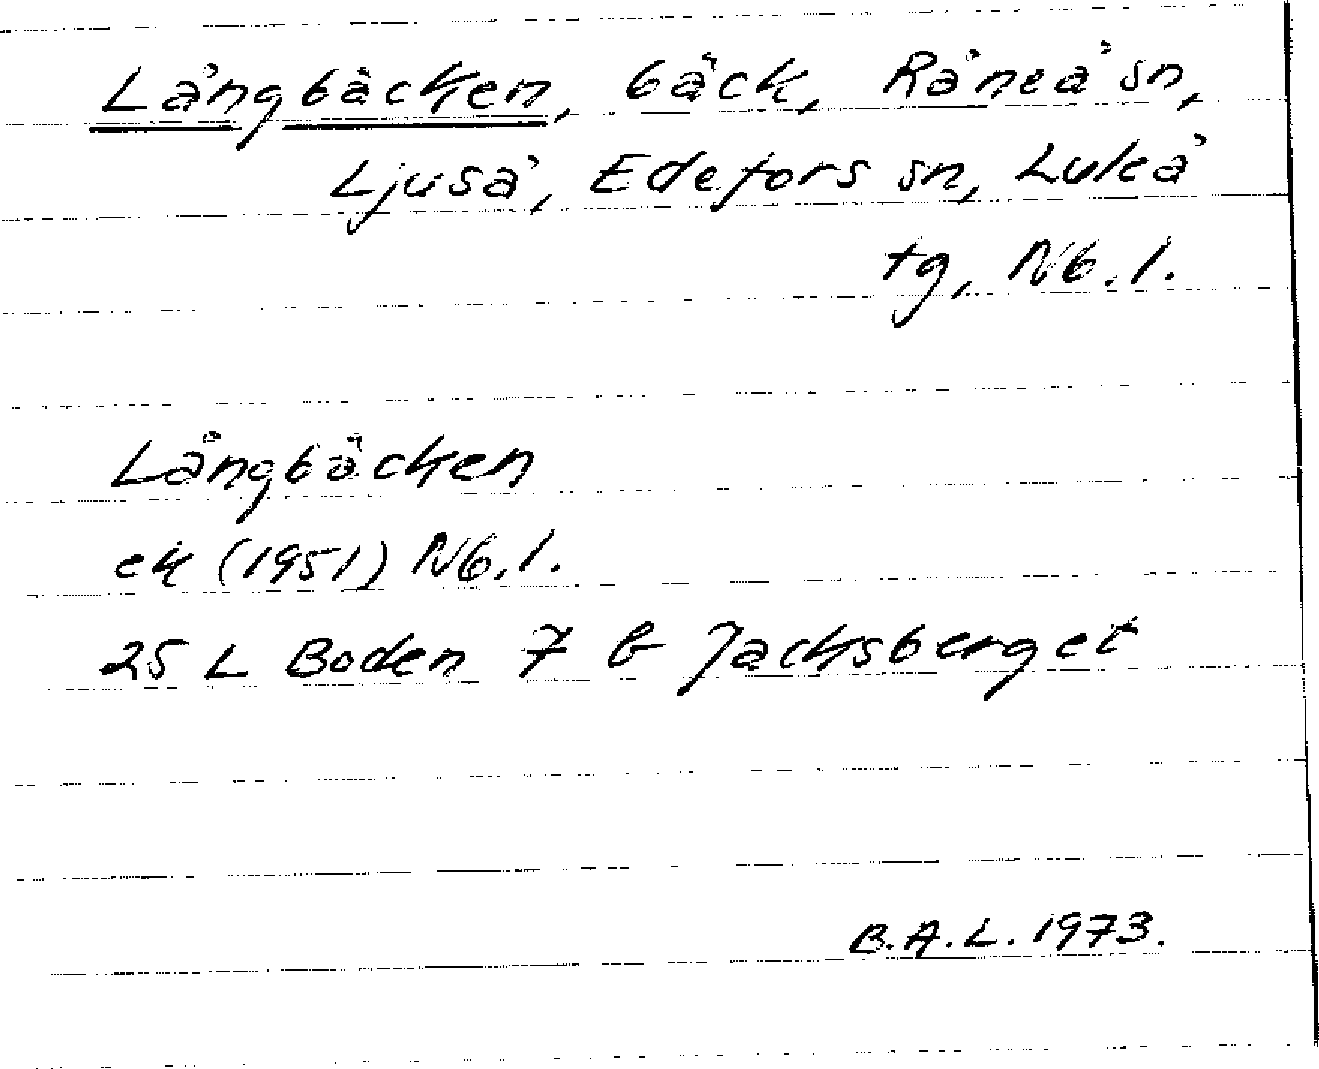 Långbäcken, bäck, Råneå sn,
Ljuså, Edefors sn, Luleå
tg, Nb.l.
Långbäcken
ek (1951) Nb.l.
25 L Boden 7 b Jacksberget
B.A.L. 1973.